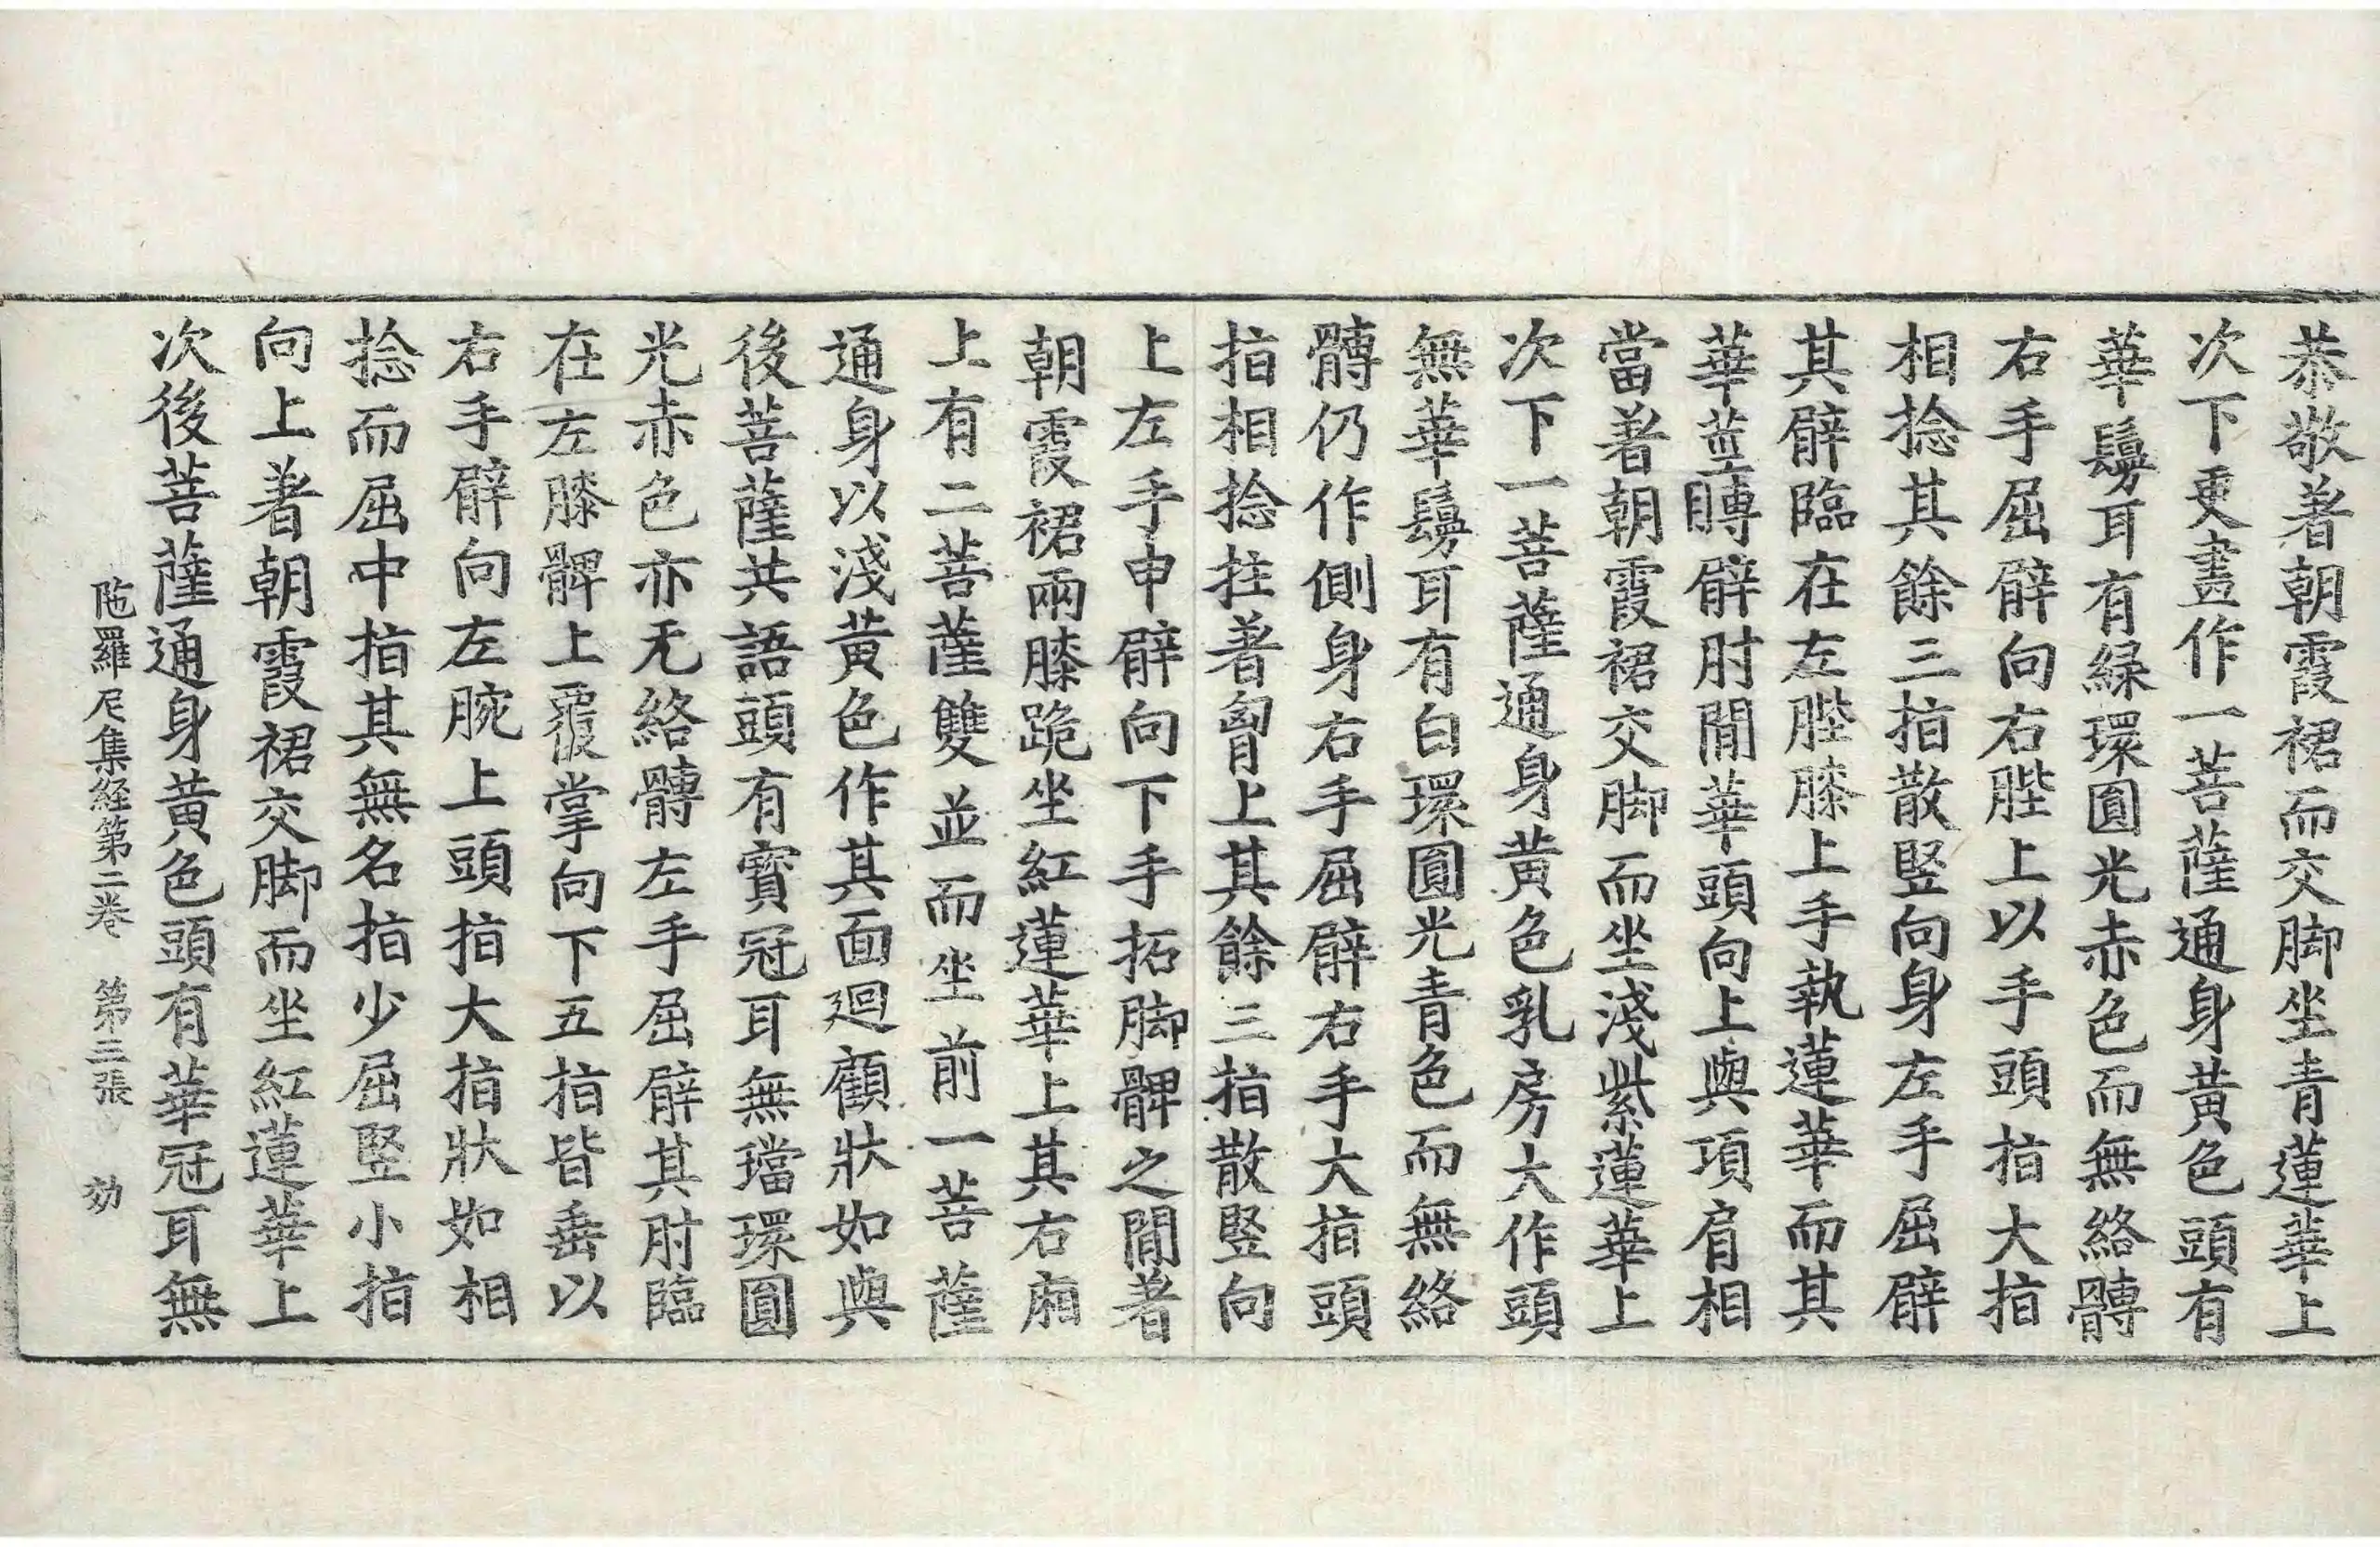 恭敬著朝霞裙而交脚坐青蓮華上
次下更畫作一菩薩通身黃色頭有
華鬘耳有緑環圓光赤色而無絡髆
右手屈臂向右䏶上以手頭指大指
相捻其餘三指散竪向身左手屈臂
其臂臨在左䏶膝上手執蓮華而其
華莖䏝臂肘閒華頭向上與項肩相
當著朝霞裙交脚而坐淺紫蓮華上
次下一菩薩通身黃色乳房大作頭
無華鬘耳有白環圓光青色而無絡
髆仍作側身右手屈臂右手大指頭
指相捻拄著胷上其餘三指散竪向
上左手申臂向下手拓脚髀之閒著
朝霞裙兩膝跪坐紅蓮華上其右廂
上有二菩薩雙並而坐前一菩薩
通身以淺黃色作其面迴顧狀如與
後菩薩共語頭有寶冠耳無璫環圓
光赤色亦无絡髆左手屈臂其肘臨
在左膝髀上覆掌向下五指皆垂以
右手臂向左腕上頭指大指狀如相
捻而屈中指其無名指少屈竪小指
向上著朝霞裙交脚而坐紅蓮華上
次後菩薩通身黃色頭有華冠耳無
陁羅尼集経第二卷　第三張　効